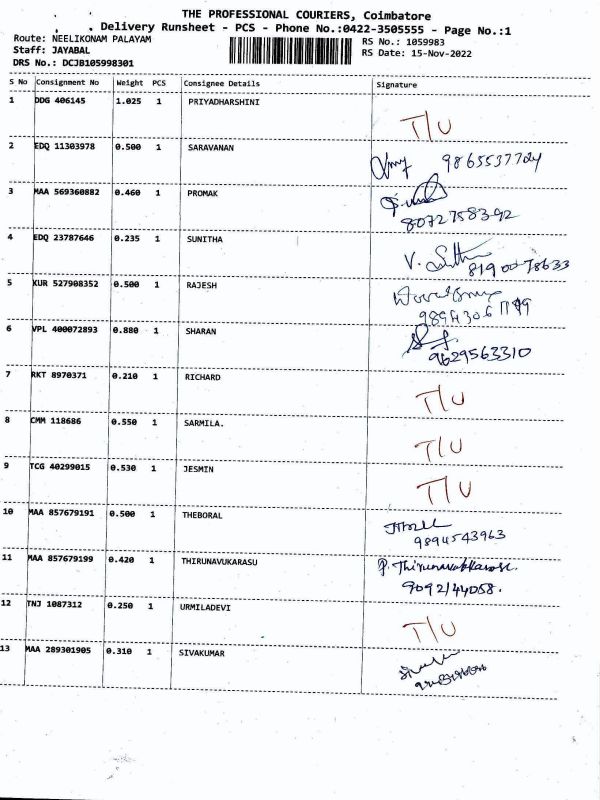 THE PROFESSIONAL COURIERS, Coimbatore
, , , Delivery Runsheet - PCS - Phone No.:0422-3505555 - Page No.:1
Route: NEELIKONAM PALAYAM RS No.: 1059983
Staff: JAYABAL RS Date: 15-Nov-2022
DRS No.: DCJB105998301
S No Consignment No Weight PCS Consignee Details Signature
1 DDG 406145 1.025 1 PRIYADHARSHINI
T/U
2 EDQ 11303978 0.500 1 SARAVANAN
9865537724
3 MAA 569360882 0.460 1 PROMAK
8072758392
4 EDQ 23787646 0.235 1 SUNITHA
V. 8190078633
5 KUR 527908352 0.500 1 RAJESH
6 VPL 400072893 0.880 1 SHARAN
9629563310
7 RKT 8970371 0.210 1 RICHARD
T/U
8 CMM 118686 0.550 1 SARMILA.
T/U
9 TCG 40299015 0.530 1 JESMIN
T/U
10 MAA 857679191 0.500 1 THEBORAL
9894543963
11 MAA 857679199 0.420 1 THIRUNAVUKARASU
P. Thirunavukkarasu.
9092144058.
12 TNJ 1087312 0.250 1 URMILADEVI
T/U
13 MAA 289301905 0.310 1 SIVAKUMAR